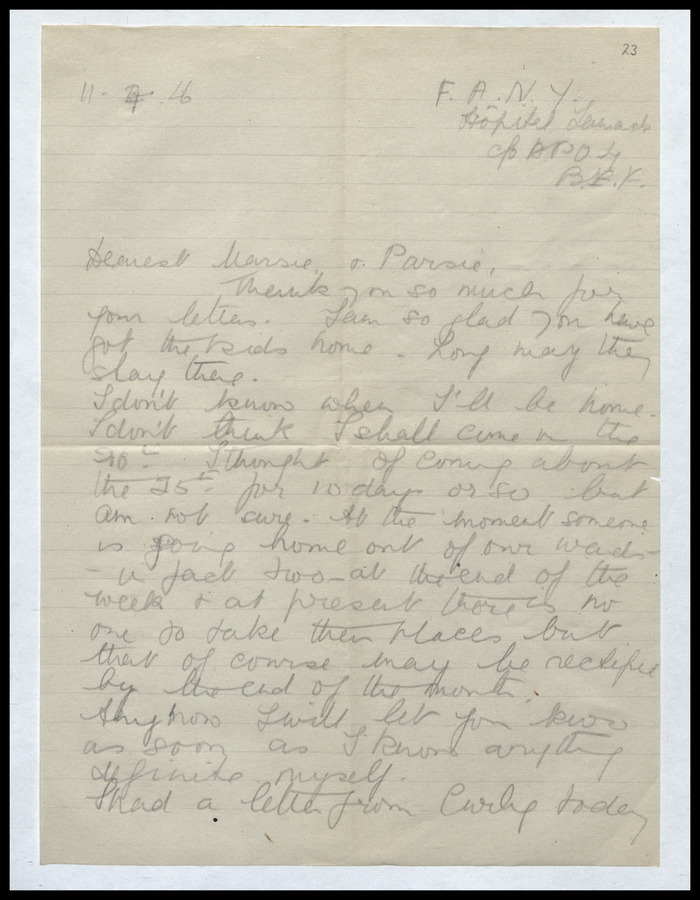 23
11 - 4 - 16
F. A. N. Y.
Hôpital Lamark
c/o APO 4
B.E.F.
Dearest Marsie & Parsie,
Thank you so much for
your letters. I am so glad you have
got the kids home. Long may they
stay there.
I don't know when I'll be home.
I don't think I shall come on the
I thought of coming about
the 25th for 10 days or so but
am not sure. At the moment someone
is going home out of our wards
- in fact two - at the end of the
week & at present there is no
one to take their places but
that of course may be rectified
by the end of the month.
Anyhow I will let you know
as soon as I know anything
definite myself.
I had a letter from Curly today